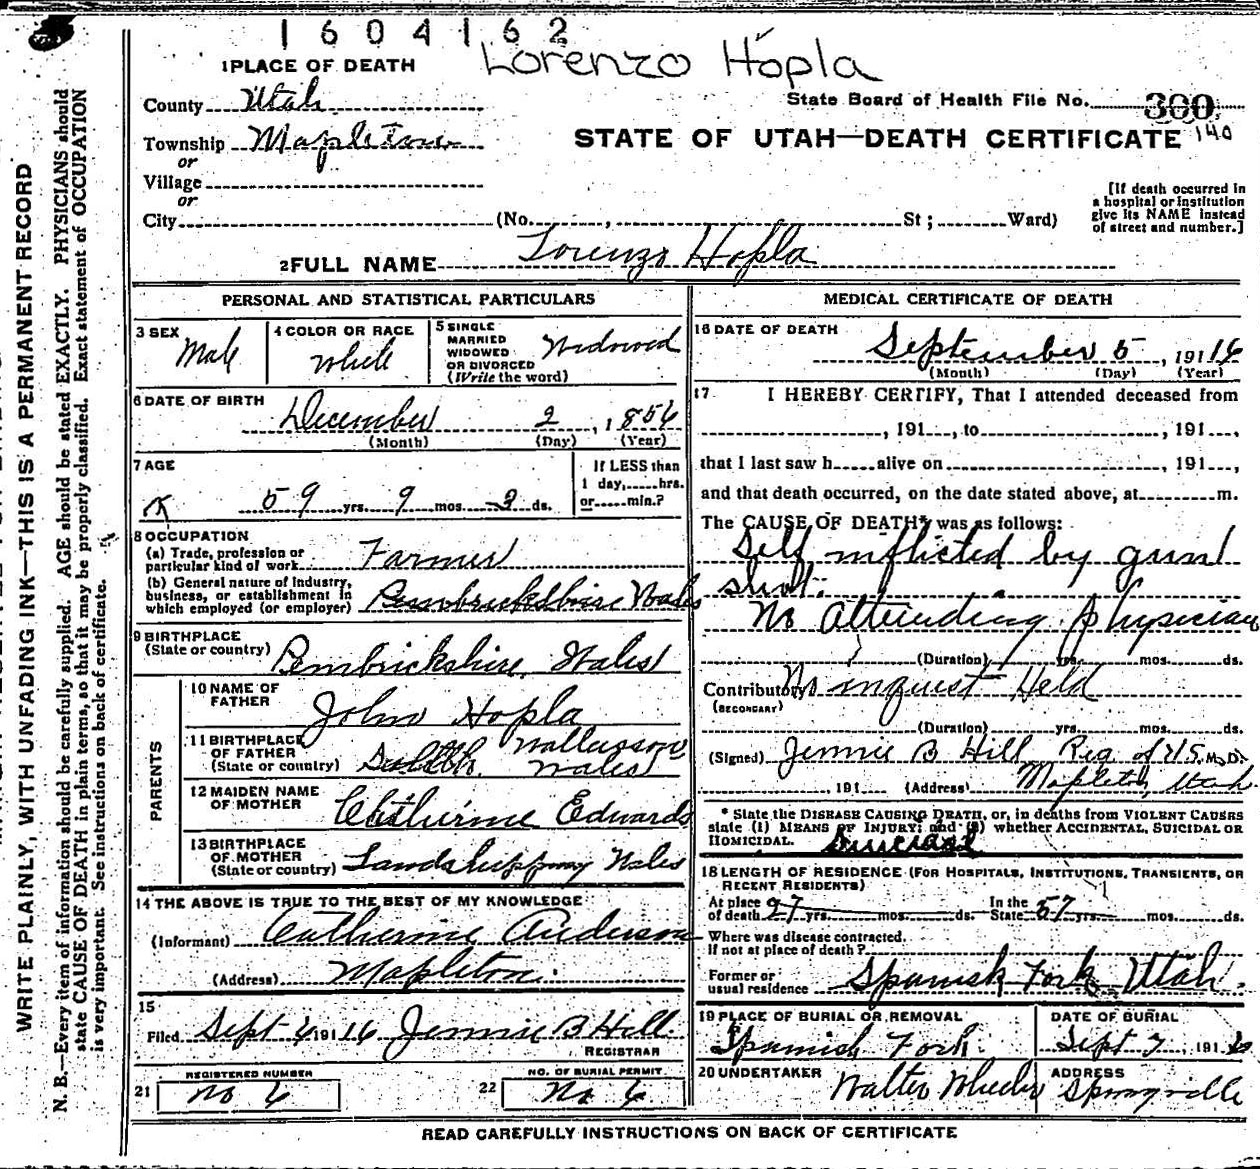 1604162
Lorenzo Hopla
1 PLACE OF DEATH
County Utah
State Board of Health File No. 300
140
Township Mapleton
STATE OF UTAH—DEATH CERTIFICATE
or
Village
or
City (No. , St ; Ward)
[If death occurred in
a hospital or institution
give its NAME instead
of street and number.]
2 FULL NAME Lorenzo Hopla
PERSONAL AND STATISTICAL PARTICULARS
3 SEX
Male
4 COLOR OR RACE
White
5 SINGLE
MARRIED
WIDOWED
OR DIVORCED
(Write the word)
Widowed
6 DATE OF BIRTH
December 2, 1856
(Month) (Day) (Year)
7 AGE
59 yrs. 9 mos. 3 ds.
If LESS than
1 day, hrs.
or min.?
8 OCCUPATION
(a) Trade, profession or
particular kind of work Farmer
(b) General nature of industry,
business, or establishment in
which employed (or employer) Pembrickshire Wales
9 BIRTHPLACE
(State or country) Pembrickshire, Wales
PARENTS
10 NAME OF
FATHER John Hopla
11 BIRTHPLACE
OF FATHER
(State or country) Wales
12 MAIDEN NAME
OF MOTHER Catherine Edwards
13 BIRTHPLACE
OF MOTHER
(State or country) Wales
14 THE ABOVE IS TRUE TO THE BEST OF MY KNOWLEDGE
(Informant) Catherine Anderson
(Address) Mapleton.
15
Filed Sept 6 191 16 Jennie B Hill
REGISTRAR
21 REGISTERED NUMBER
No 6
22 NO. OF BURIAL PERMIT
No. 6
MEDICAL CERTIFICATE OF DEATH
16 DATE OF DEATH
September 5, 191 16
(Month) (Day) (Year)
17 I HEREBY CERTIFY, That I attended deceased from
, 191 , to , 191 ,
that I last saw h alive on , 191 ,
and that death occurred, on the date stated above, at m.
The CAUSE OF DEATH* was as follows:
Self inflicted by gun
shot.
No Attending Physician
(Duration) yrs. mos. ds.
Contributory No inquest Held
(SECONDARY)
(Duration) yrs. mos. ds.
(Signed) Jennie B Hill Reg of V.S. M.D.
, 191 (Address) Mapleton, Utah
* State the DISEASE CAUSING DEATH, or, in deaths from VIOLENT CAUSES
state (1) MEANS OF INJURY; and (2) whether ACCIDENTAL, SUICIDAL OR
HOMICIDAL.
18 LENGTH OF RESIDENCE (FOR HOSPITALS, INSTITUTIONS, TRANSIENTS, OR
RECENT RESIDENTS)
At place
of death 27 yrs. mos. ds. In the
State 57 yrs. mos. ds.
Where was disease contracted.
If not at place of death?
Former or
usual residence Spanish Fork, Utah.
19 PLACE OF BURIAL OR REMOVAL
Spanish Fork.
DATE OF BURIAL
Sept 7, 191
20 UNDERTAKER
Walter Wheeler
ADDRESS
Springville
READ CAREFULLY INSTRUCTIONS ON BACK OF CERTIFICATE
WRITE PLAINLY, WITH UNFADING INK—THIS IS A PERMANENT RECORD
N. B.—Every item of information should be carefully supplied. AGE should be stated EXACTLY. PHYSICIANS should
state CAUSE OF DEATH in plain terms, so that it may be properly classified. Exact statement of OCCUPATION
is very important. See instructions on back of certificate.